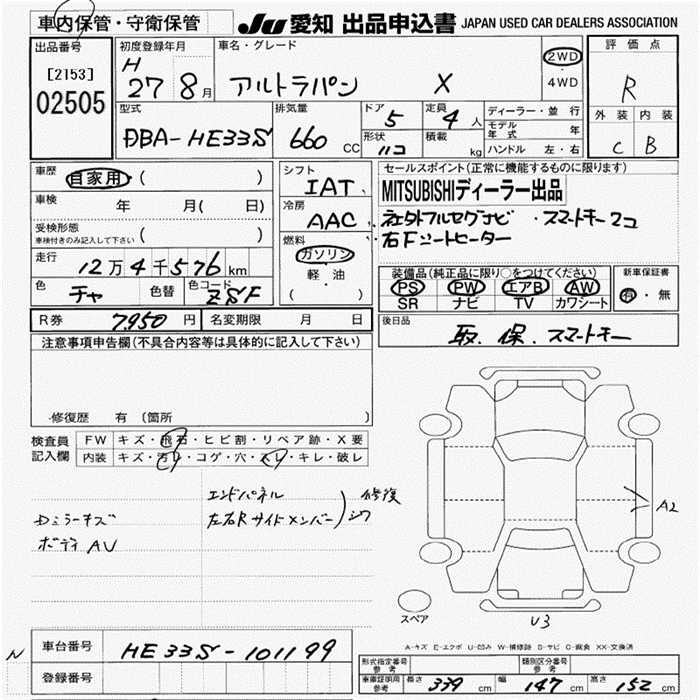 車内保管・守衛保管
JU 愛知 出品申込書 JAPAN USED CAR DEALERS ASSOCIATION
出品番号
[2153]
02505
初度登録年月
H
27 8月
車名・グレード
アルトラパン X
2WD
・
4WD
評価点
R
外装 内装
C B
型式
DBA-HE33S
排気量
660 cc
ドア
5
形状
ハコ
定員
4人
積載
kg
ディーラー・並行
モデル年式 年
ハンドル 左・右
車歴
自家用 ( )
車検
年 月( 日)
受検形態
車検付きのみ記入して下さい ( )
走行
12万4千576km
色
チャ
色替
色コード
ZSF
シフト
IAT
冷房
AAC
燃料
ガソリン
軽・油
( )
セールスポイント(正常に機能するものに限ります)
MITSUBISHIディーラー出品
社外フルセグナビ・スマートキー2コ
右Fシートヒーター
装備品(純正品に限り○をつけてください)
PS PW エアB AW
SR ナビ TV カワシート
新車保証書
有・無
R券 7,950円
名変期限 月 日
後日品
取.保.スマートキー
注意事項申告欄(不具合内容等は具体的に記入して下さい)
・修復歴 有 〔箇所 〕
検査員
記入欄
FW キズ・飛石・ヒビ割・リペア跡・X要
内装 キズ・汚レ・コゲ・穴・スレ・キレ・破レ
Dミラーキズ
ボディAU
エンドパネル
左右Rサイドメンバー
修復
シワ
A2
スペア
U3
A-キズ E-エクボ U-凹み W-補修跡 S-サビ C-腐食 XX-交換済
N
車台番号
HE33S-101199
登録番号
形式指定番号
参考
類別区分番号
参考
車庫証明用
参考
長さ 339cm
幅 147cm
高さ 152cm